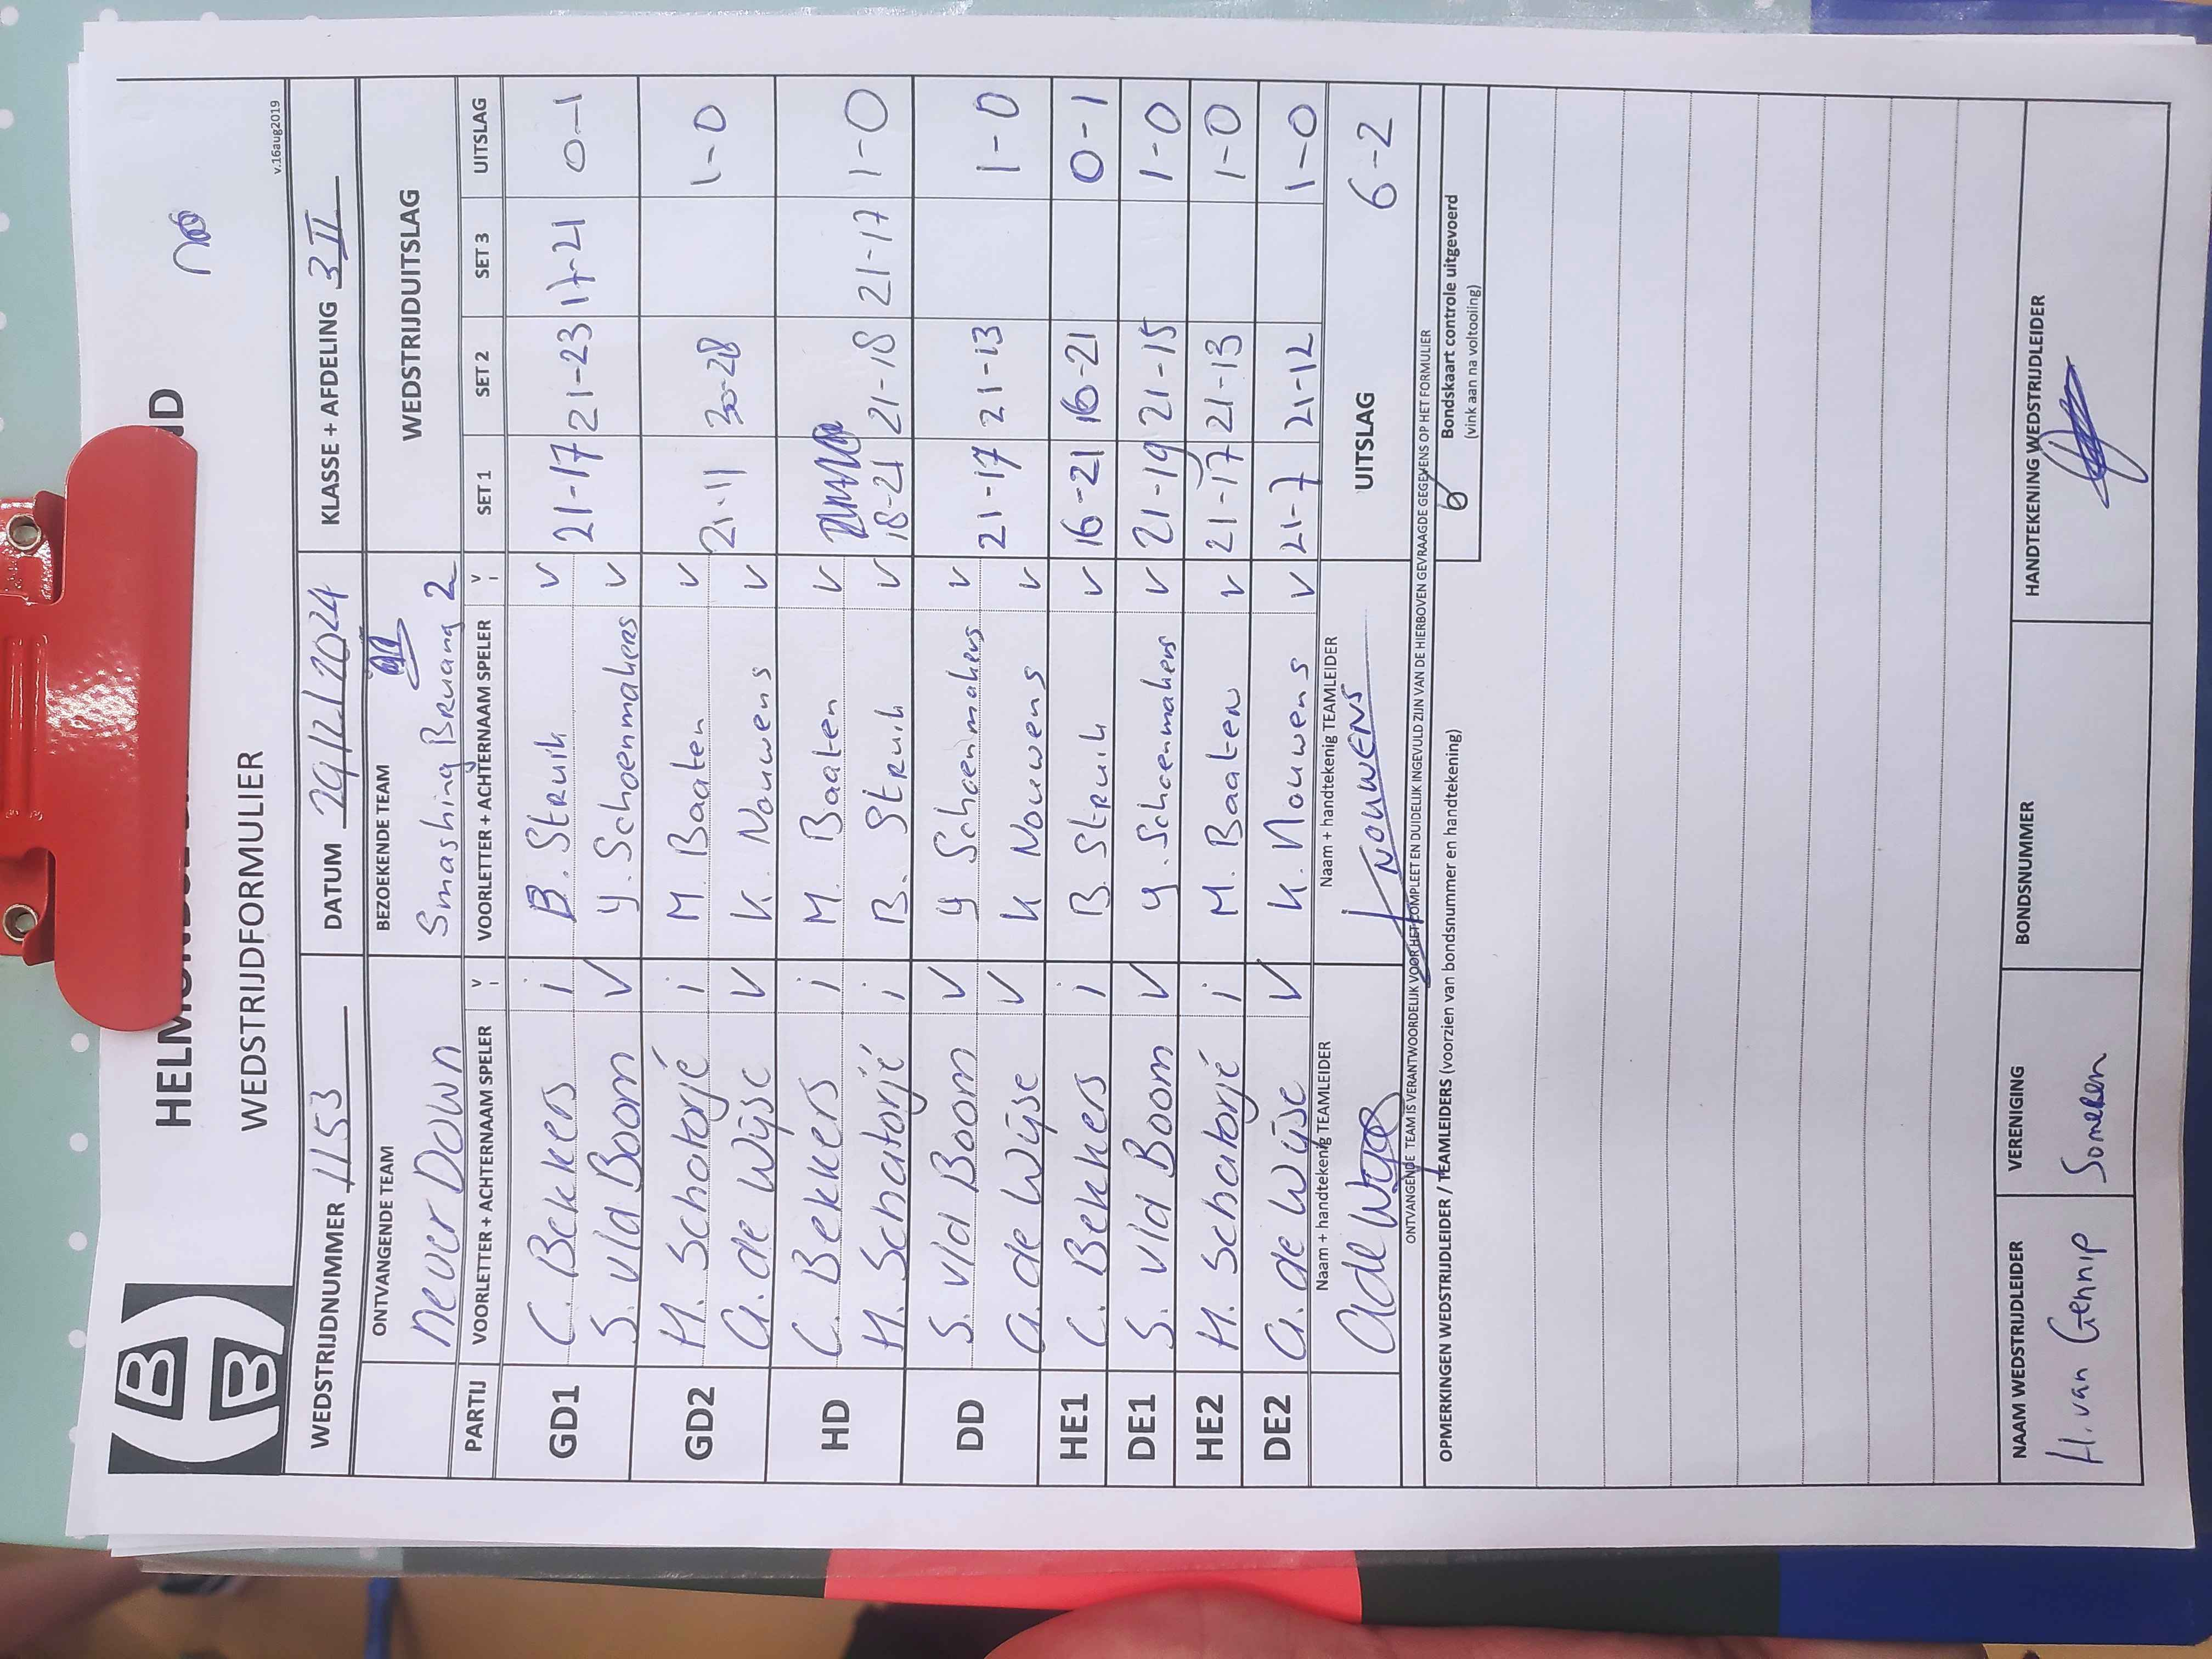 HELMOND
nø
WEDSTRIJDFORMULIER
v.16aug2019
B
B
WEDSTRIJDNUMMER 1153 DATUM 29/12/2024 KLASSE + AFDELING 3 II
ONTVANGENDE TEAM BEZOEKENDE TEAM WEDSTRIJDUITSLAG
Never Down Smashing Bruang 2
PARTIJ VOORLETTER + ACHTERNAAM SPELER V I VOORLETTER + ACHTERNAAM SPELER V I SET 1 SET 2 SET 3 UITSLAG
GD1 C. Bekkers i B. Struik v 21-17 21-23 17-21 0-1
S. v/d Boom V Y. Schoenmakers v
GD2 H. Schatorjé i M. Baaten v 21-11 30-28 1-0
G. de Wijse V K. Nouwens v
HD C. Bekkers i M. Baaten v
H. Schatorjé i B. Struik v 18-21 21-18 21-17 1-0
DD S. v/d Boom V Y Schoenmakers v 21-17 21-13 1-0
G. de Wijse V K Nouwens v
HE1 C. Bekkers i B. Struik v 16-21 16-21 0-1
DE1 S. v/d Boom V Y. Schoenmakers v 21-19 21-15 1-0
HE2 H. Schatorjé i M. Baaten v 21-17 21-13 1-0
DE2 G. de Wijse V K. Nouwens v 21-7 21-12 1-0
Naam + handtekenig TEAMLEIDER Naam + handtekenig TEAMLEIDER UITSLAG 6-2
NOUWENS
ONTVANGENDE TEAM IS VERANTWOORDELIJK VOOR HET COMPLEET EN DUIDELIJK INGEVULD ZIJN VAN DE HIERBOVEN GEVRAAGDE GEGEVENS OP HET FORMULIER
OPMERKINGEN WEDSTRIJDLEIDER / TEAMLEIDERS (voorzien van bondsnummer en handtekening)
Bondskaart controle uitgevoerd
(vink aan na voltooiing)
NAAM WEDSTRIJDLEIDER VERENIGING BONDSNUMMER HANDTEKENING WEDSTRIJDLEIDER
H. van Gennip Someren